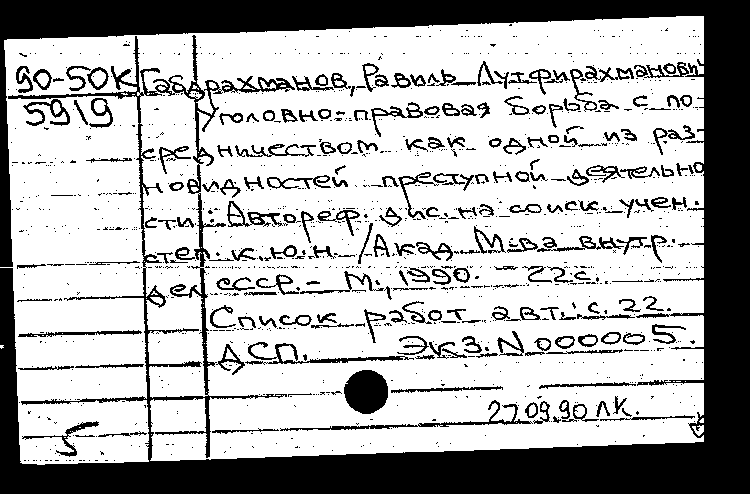 90-50К
5919
Габдрахманов, Равиль Лутфирахманович
Уголовно-правовая борьба с по-
средничеством как одной из раз-
новидностей преступной деятельно
сти: Автореф. дис. на соиск. учен.
степ. к.ю.н. /Акад. М-ва внутр.
дел СССР.- М., 1990. - 22с.
Список работ авт.: с. 22.
ДСП. Экз. N 000005.
27.09.90 ЛК.
5